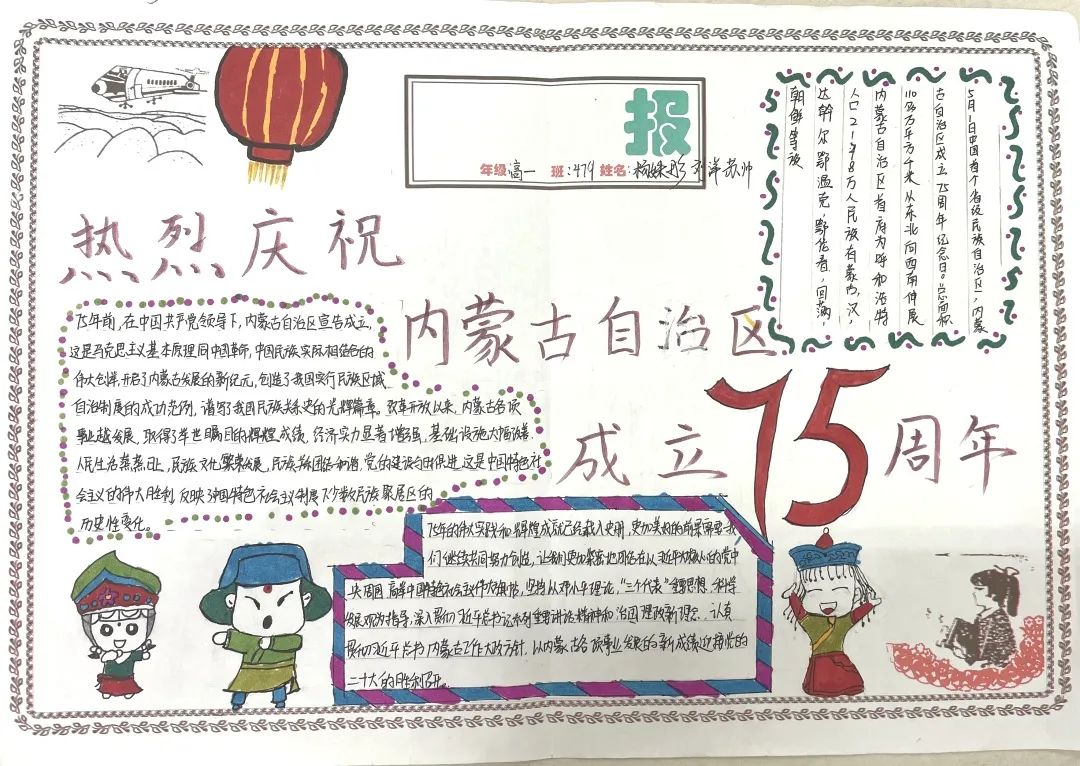 报
年级高一 班:479 姓名:
5月1日中国首个省级民族自治区，内蒙
古自治区成立75周年纪念日。总面积
118.3万平方千米从东北向西南伸展
内蒙古自治区首府为呼和浩特
人口
人民族有蒙古，汉，
达斡尔鄂温克，鄂伦春，回，满，
朝鲜等族
热烈庆祝
内蒙古自治区
成立75周年
75年前，在中国共产党领导下，内蒙古自治区宣告成立，
这是马克思主义基本原理同中国革命，中国民族实际相结合的
伟大创举，开启了内蒙古发展的新纪元，创造了我国实行民族区域
自治制度的成功范例，谱写了我国民族关系史的光辉篇章。改革开放以来，内蒙古各项
事业发展，取得了举世瞩目的辉煌成绩，经济实力显著增强，基础设施大幅改善，
人民生活蒸蒸日上，民族文化繁荣发展，民族团结和谐，党的建设，这是中国特色社
会主义的伟大胜利，反映了中国特色社会主义制度下少数民族聚居区的
历史性变化。
75年的伟大实践和辉煌成就已经载入史册，更加美好的前景需要我
们继续共同努力创造，让我们更加紧密地团结在以习近平为核心的党中
央周围，高举中国特色社会主义伟大旗帜，坚持以邓小平理论，“三个代表”重要思想，科学
发展观为指导，深入贯彻习近平总书记系列重要讲话精神和治国理政新理念，认真
贯彻习近平总书记内蒙古工作大政方针，以内蒙古各项事业发展的新成绩迎接党的
二十大的胜利召开。